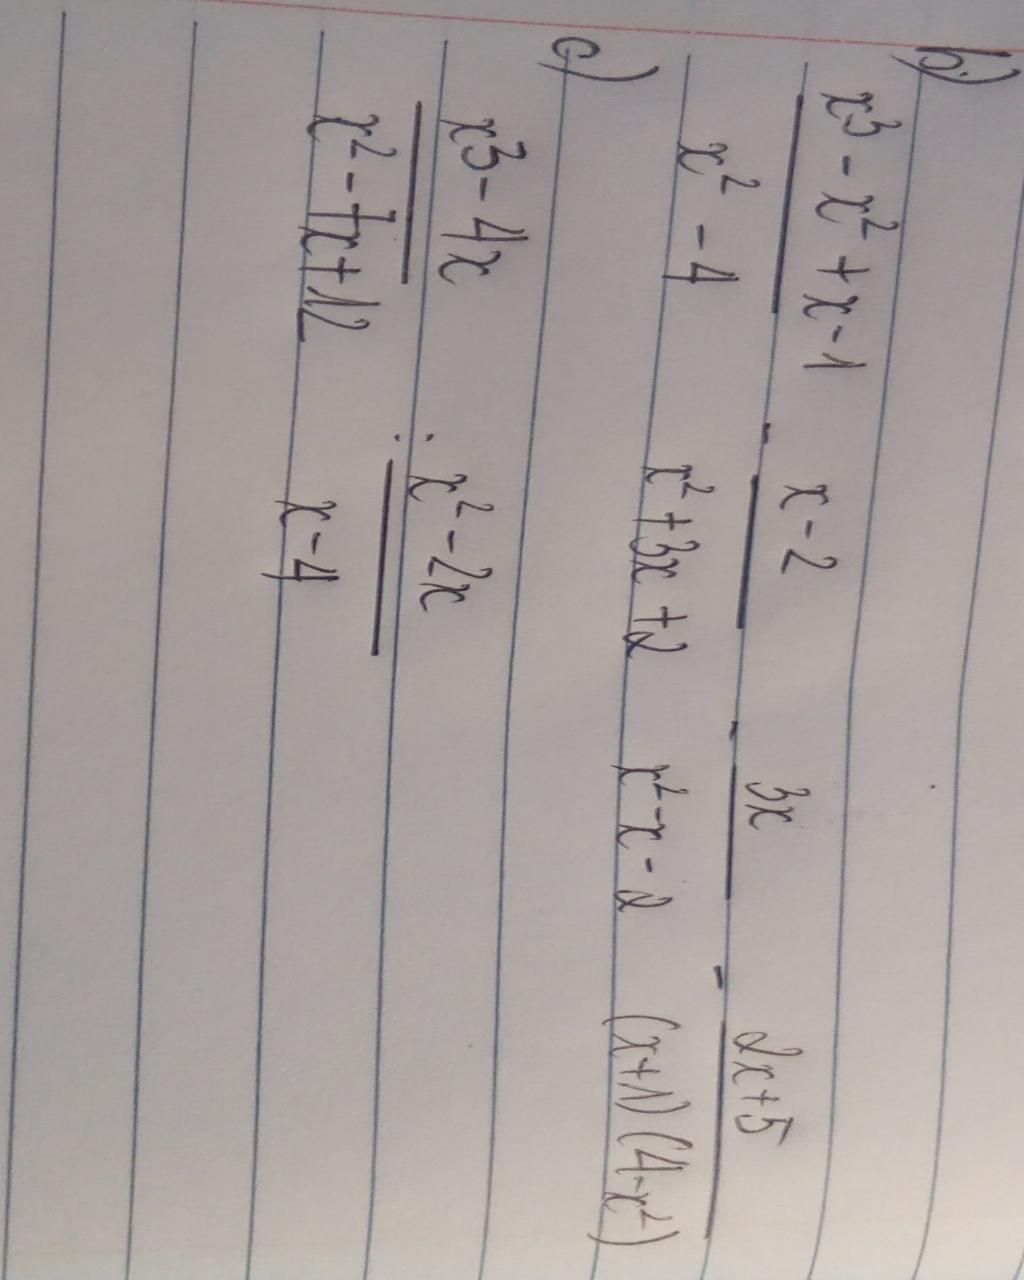 b)
x³ - x² + x - 1 / x² - 4 - x - 2 / x² + 3x + 2 - 3x / x² - x - 2 - 2x + 5 / (x+1)(4-x²)
c)
x³ - 4x / x² - 7x + 12 : x² - 2x / x - 4